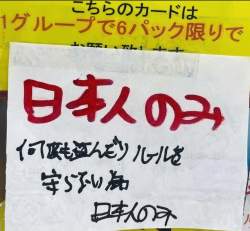 こちらのカードは
1グループで6パック限りで
お願い致します
日本人のみ
何度も盗んだり ルールを
守らない為
日本人のみ